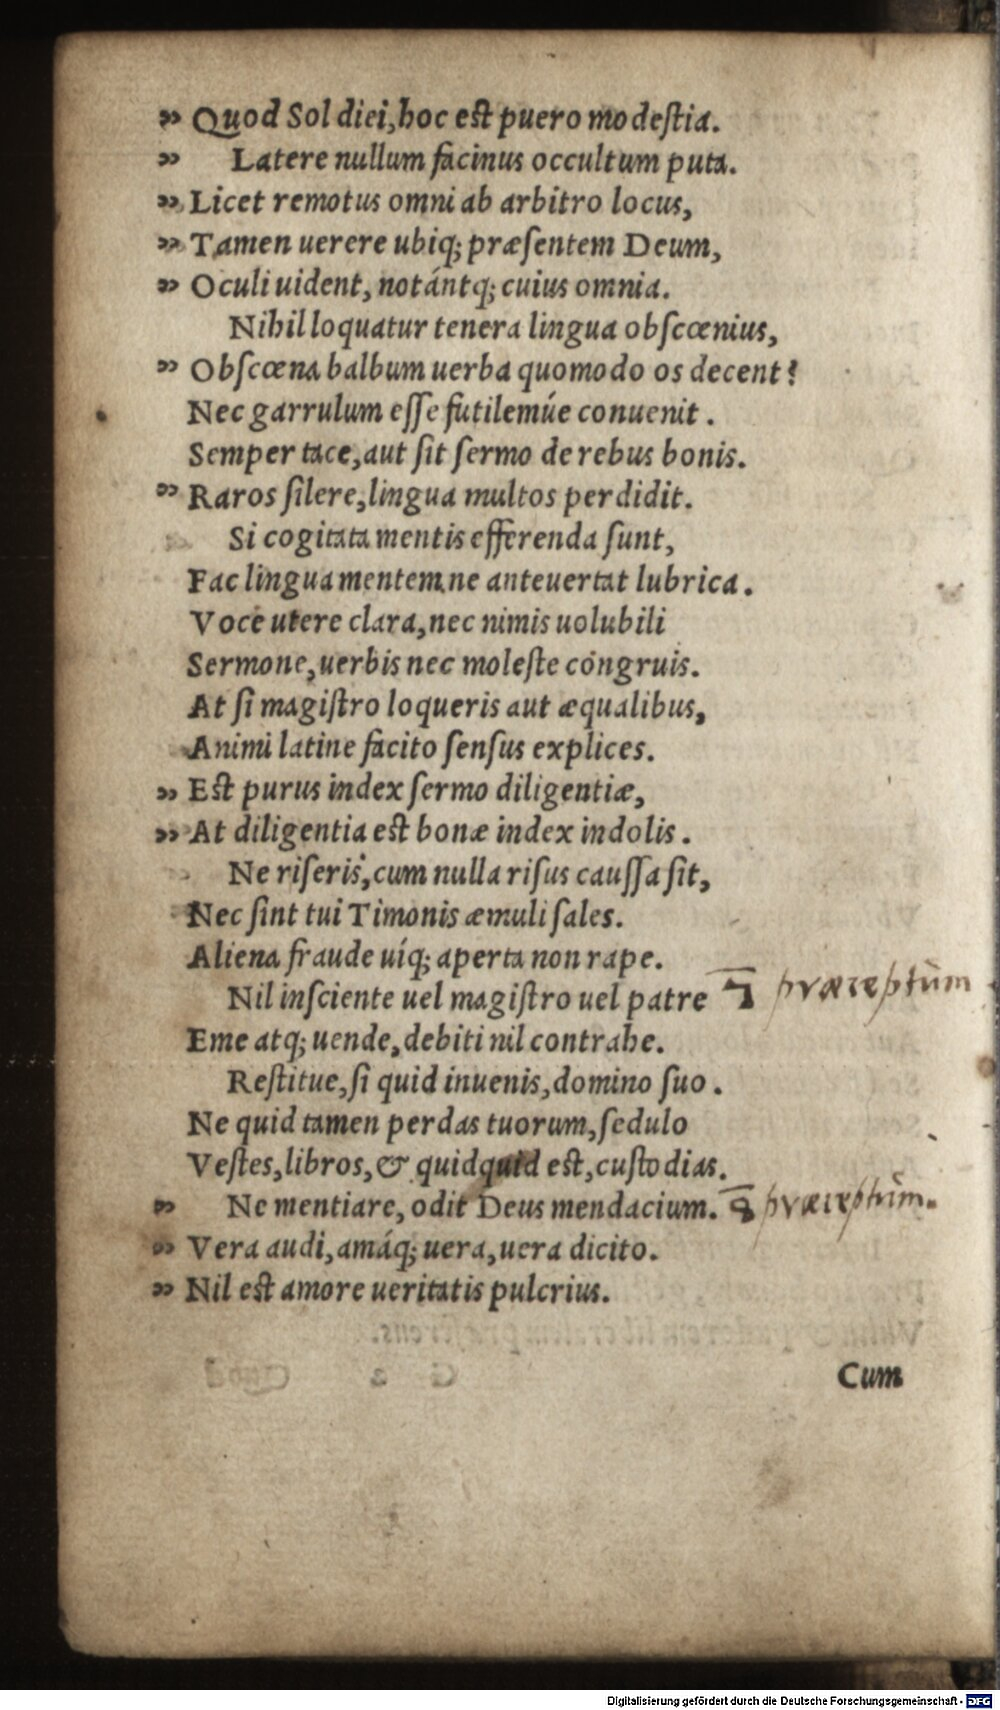 „ Quod Sol diei, hoc est puero modestia.
„ Latere nullum facinus occultum puta.
„ Licet remotus omni ab arbitro locus,
„ Tamen uerere ubiq; præsentem Deum,
„ Oculi uident, notántq; cuius omnia.
Nihil loquatur tenera lingua obscœnius,
„ Obscœna balbum uerba quomodo os decent?
Nec garrulum esse futilemúe conuenit.
Semper tace, aut sit sermo de rebus bonis.
„ Raros silere, lingua multos perdidit.
Si cogitata mentis efferenda sunt,
Fac lingua mentem ne anteuertat lubrica.
Voce utere clara, nec nimis uolubili
Sermone, uerbis nec moleste congruis.
At si magistro loqueris aut æqualibus,
Animi latine facito sensus explices.
„ Est purus index sermo diligentiæ,
„ At diligentia est bonæ index indolis.
Ne riseris, cum nulla risus caussa sit,
Nec sint tui Timonis æmuli sales.
Aliena fraude uíq; aperta non rape.
Nil insciente uel magistro uel patre 7 præceptum
Eme atq; uende, debiti nil contrahe.
Restitue, si quid inuenis, domino suo.
Ne quid tamen perdas tuorum, sedulo
Vestes, libros, & quidquid est, custodias.
„ Ne mentiare, odit Deus mendacium. 8 præceptum.
„ Vera audi, amáq; uera, uera dicito.
„ Nil est amore ueritatis pulcrius.
Cum
Digitalisierung gefördert durch die Deutsche Forschungsgemeinschaft - DFG